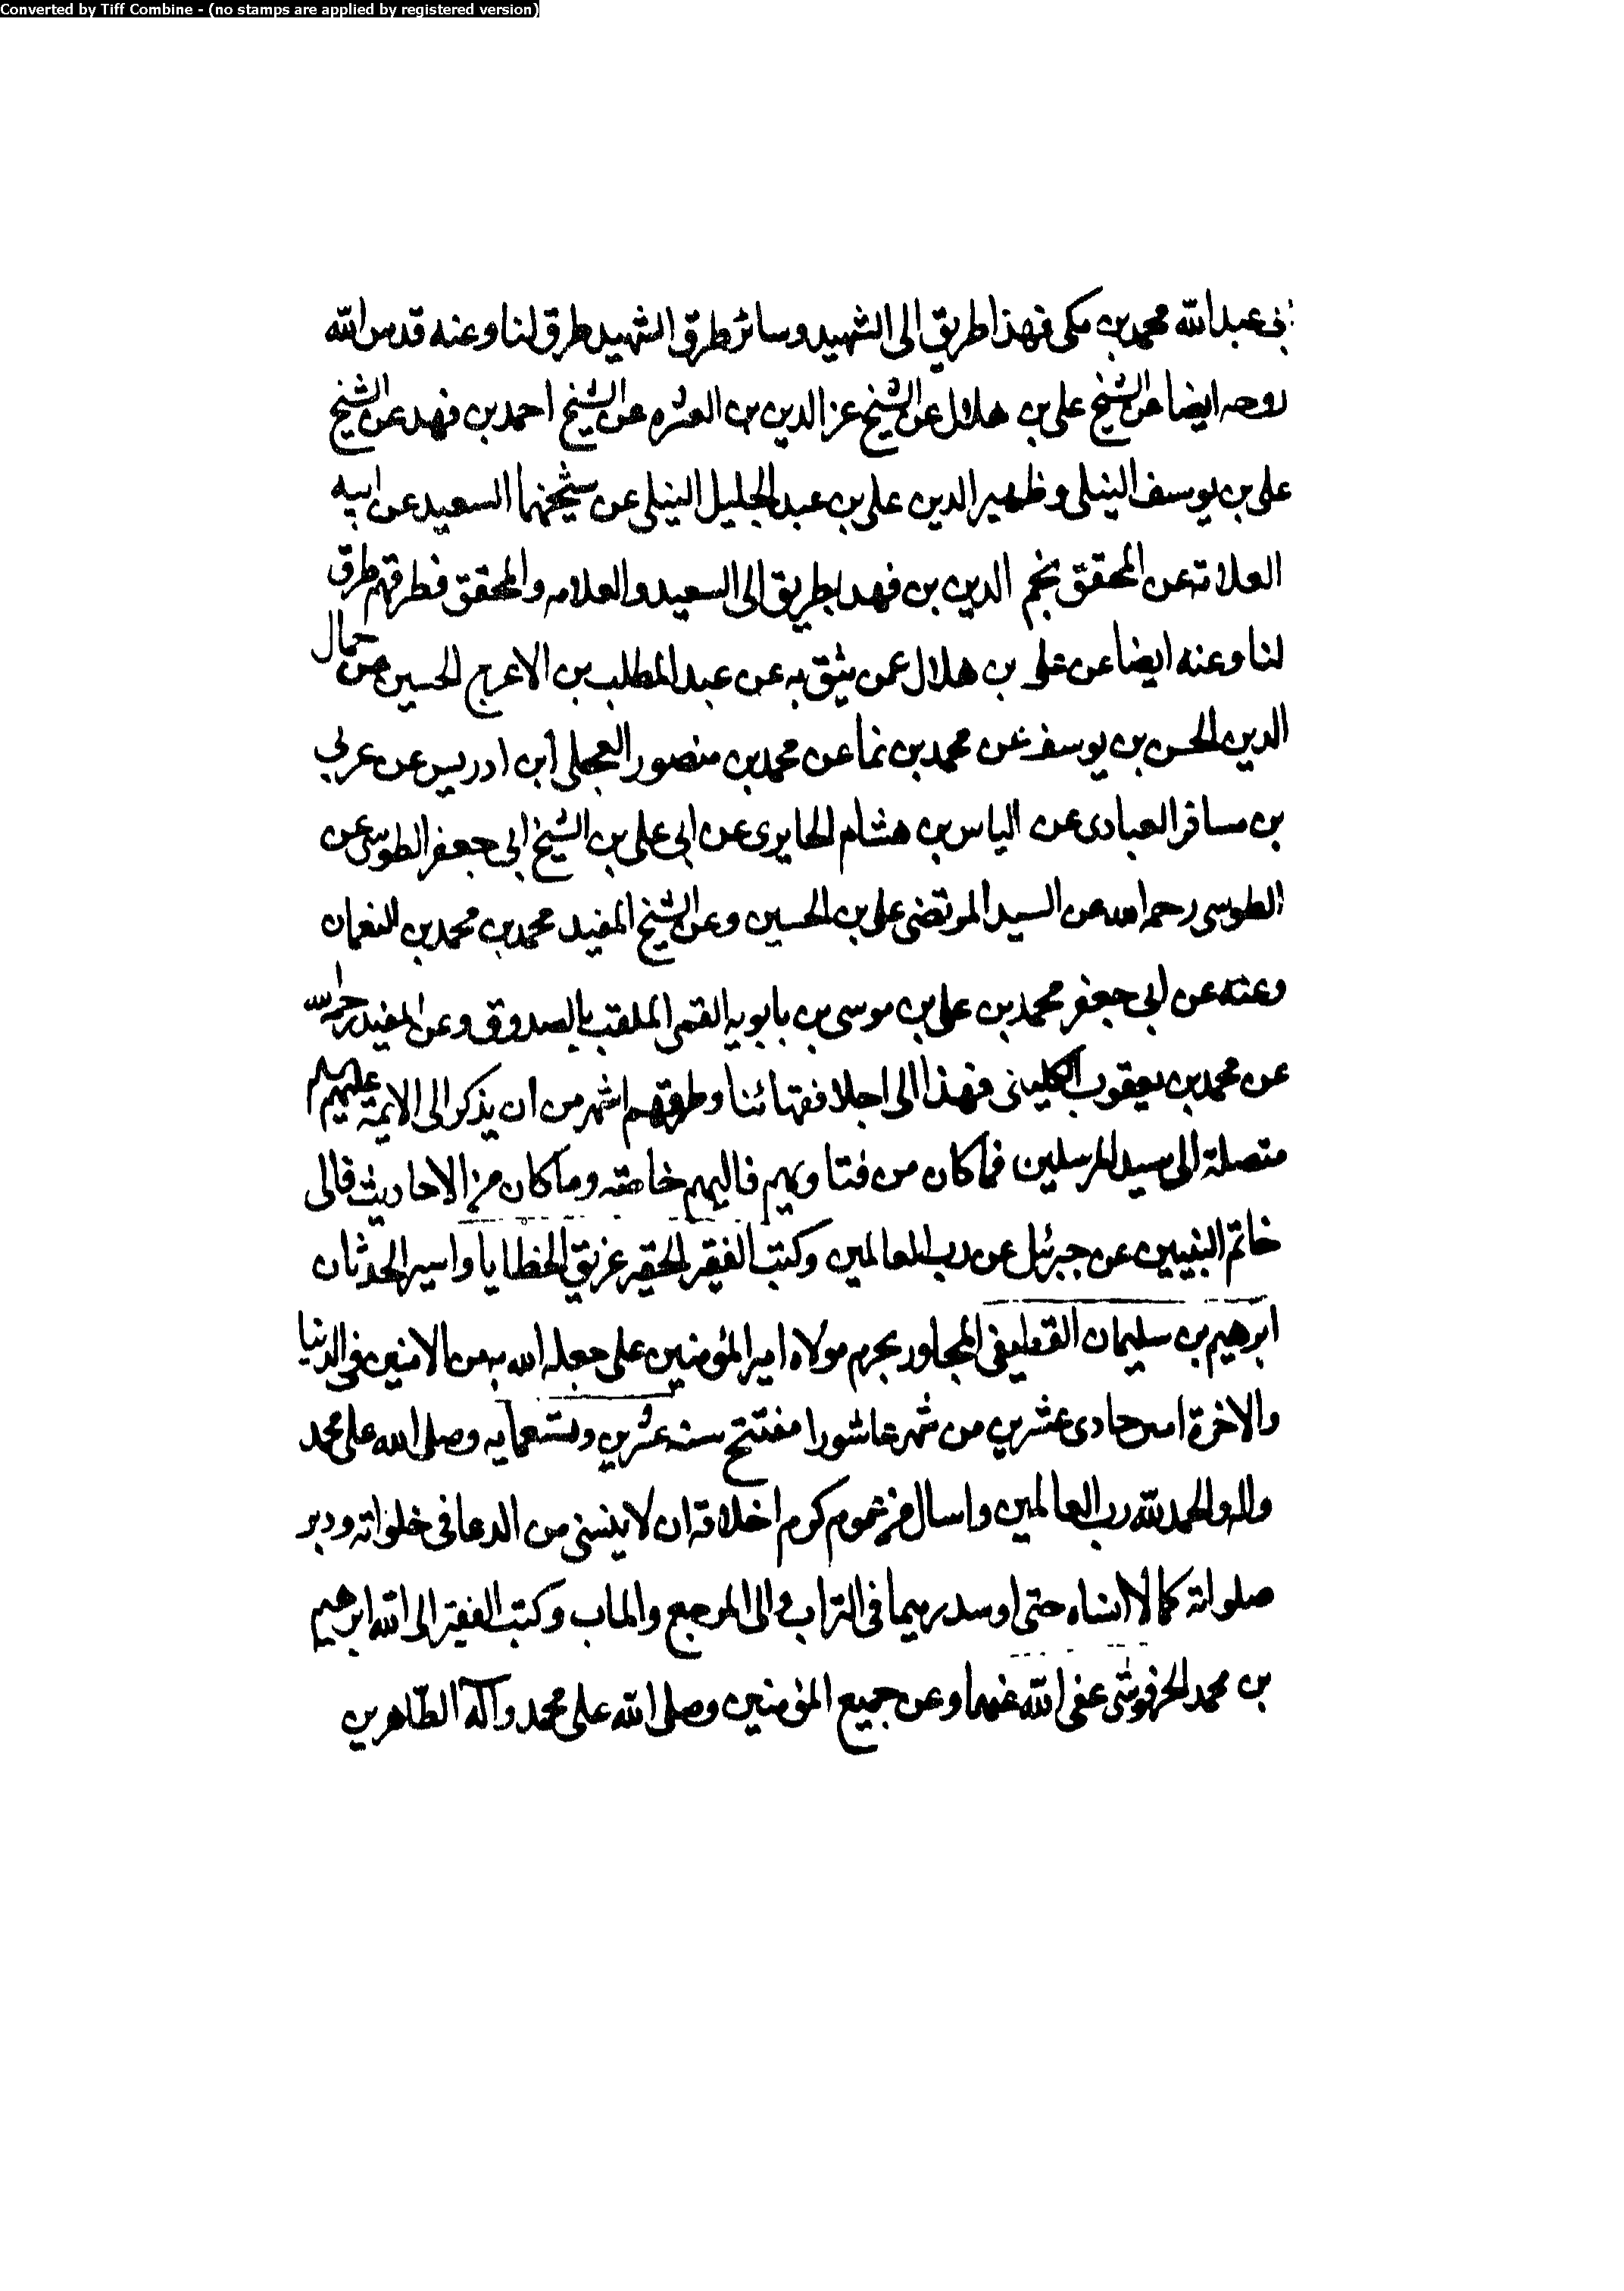 Converted by Tiff Combine - (no stamps are applied by registered version)
ابى عبد الله محمد بن مكى فهذا طريق الى الشهيد وسائر طرق الشهيد طرق لنا وعنه قدس الله
روحه ايضا عن الشيخ على بن هلال عن الشيخ عز الدين بن العشره عن الشيخ احمد بن فهد عن الشيخ
على بن يوسف النيلى وظهير الدين على بن عبد الجليل النيلى عن شيخهما السعيد عن ابيه
العلامة عن المحقق نجم الدين بن فهد طريق الى السعيد والعلامه والمحقق فطرقهم طرق
لنا وعنه ايضا عن على بن هلال عمن يثق به عن عبد المطلب بن الاعرج الحسين عن جمال
الدين الحسن بن يوسف عن محمد بن نما عن محمد بن منصور العجلى ابن ادريس عن عربي
بن مسافر العبادى عن الياس بن هشام الحايرى عن ابى على بن الشيخ ابى جعفر الطوسى عن
الطوسى رحمه الله عن السيد المرتضى على بن الحسين وعن الشيخ المفيد محمد بن محمد بن النعمان
وعنه عن ابى جعفر محمد بن على بن موسى بن بابويه القمى الملقب بالصدوق وعن المفيد رحمه الله
عن محمد بن يعقوب الكلينى فهذا الى اجلا فقهائنا وطرقهم اشهر من ان يذكر الى الائمة عليهم السلم
متصلة الى سيد المرسلين فما كان من فتاويهم فاليهم خاصة وما كان من الاحاديث فالى
خاتم النبيين عن جبرئيل عن رب العالمين وكتب الفقير الحقير غريق الخطايا واسير الحدثان
ابرهيم بن سليمان القطيفى المجاور بحرم مولاه امير المؤمنين على جعله الله به من الامنين فى الدنيا
والاخرة امين حادى عشرين من شهر عاشورا مفتتح سنه عشرين وتسعمايه وصلى الله على محمد
واله والحمد لله رب العالمين واسال من عموم كرم اخلاقه ان لا ينسنى من الدعا فى خلواته ودبر
صلواته كما لا انساه حتى اوسد رميما فى التراب والى المرجع والماب وكتب الفقير الى الله ابرهيم
بن محمد الحرفوشى عفى الله عنهما وعن جميع المؤمنين وصلى الله على محمد وآله الطاهرين